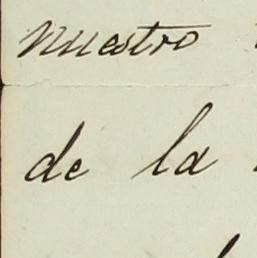 nuestro
de la